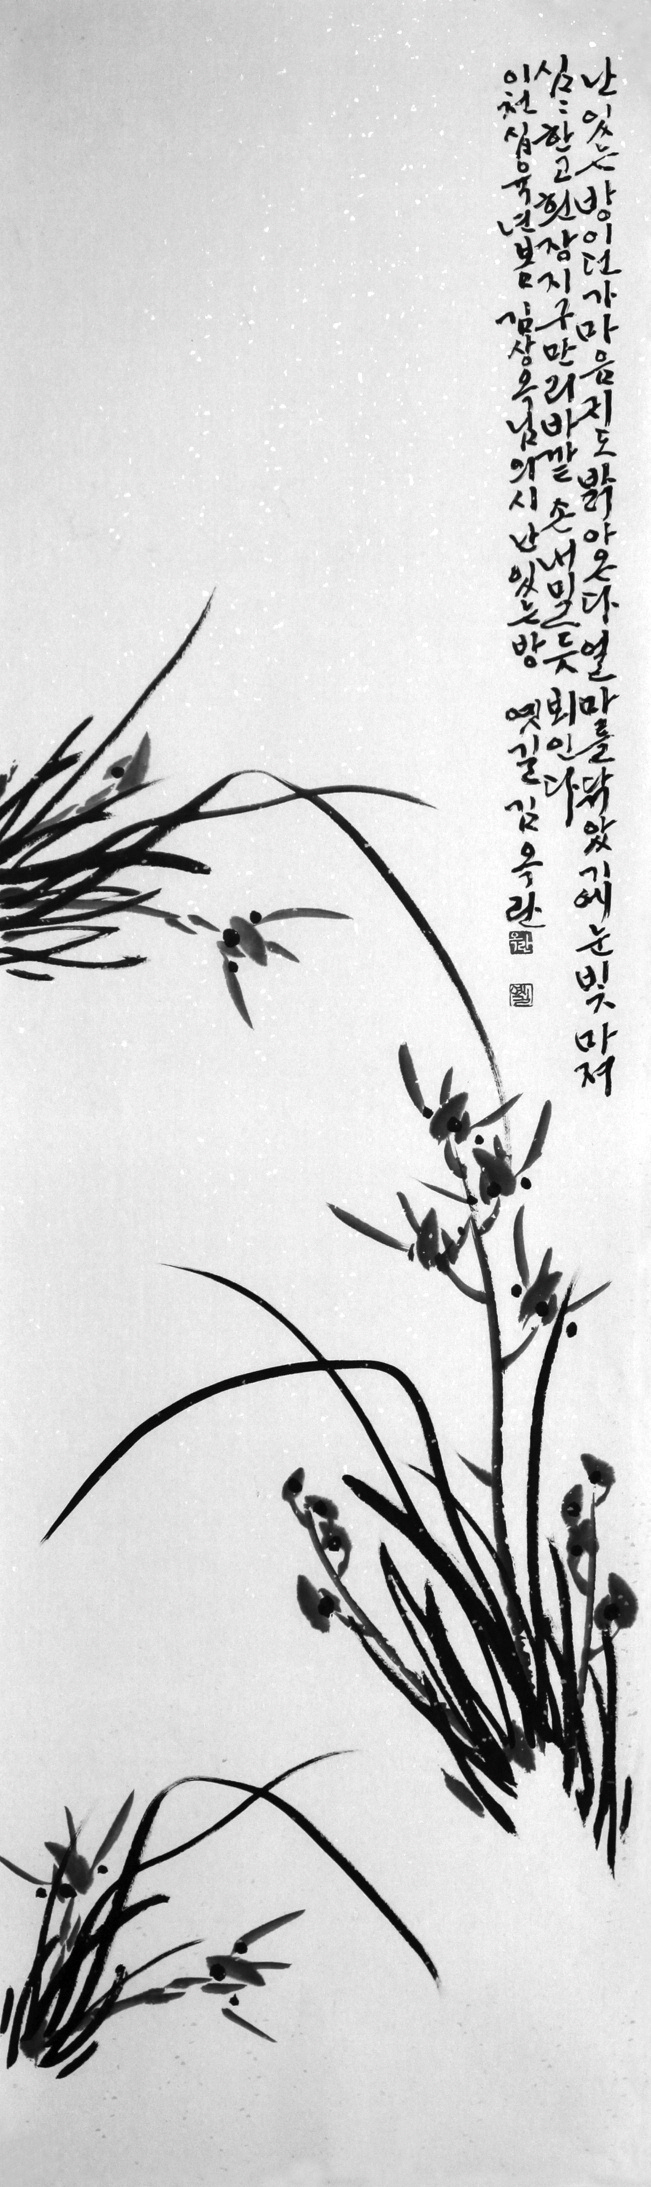 난 있는 방이던가 마음귀도 밝아온다 얼마를 닦았기에 눈빛 마져
심심한고 흰 장지 구만리 바깥 손 내밀 듯 뵈인다
이천십육년 봄 김상옥님의 시 난 있는 방 옛길 김옥란
옥란
옛길